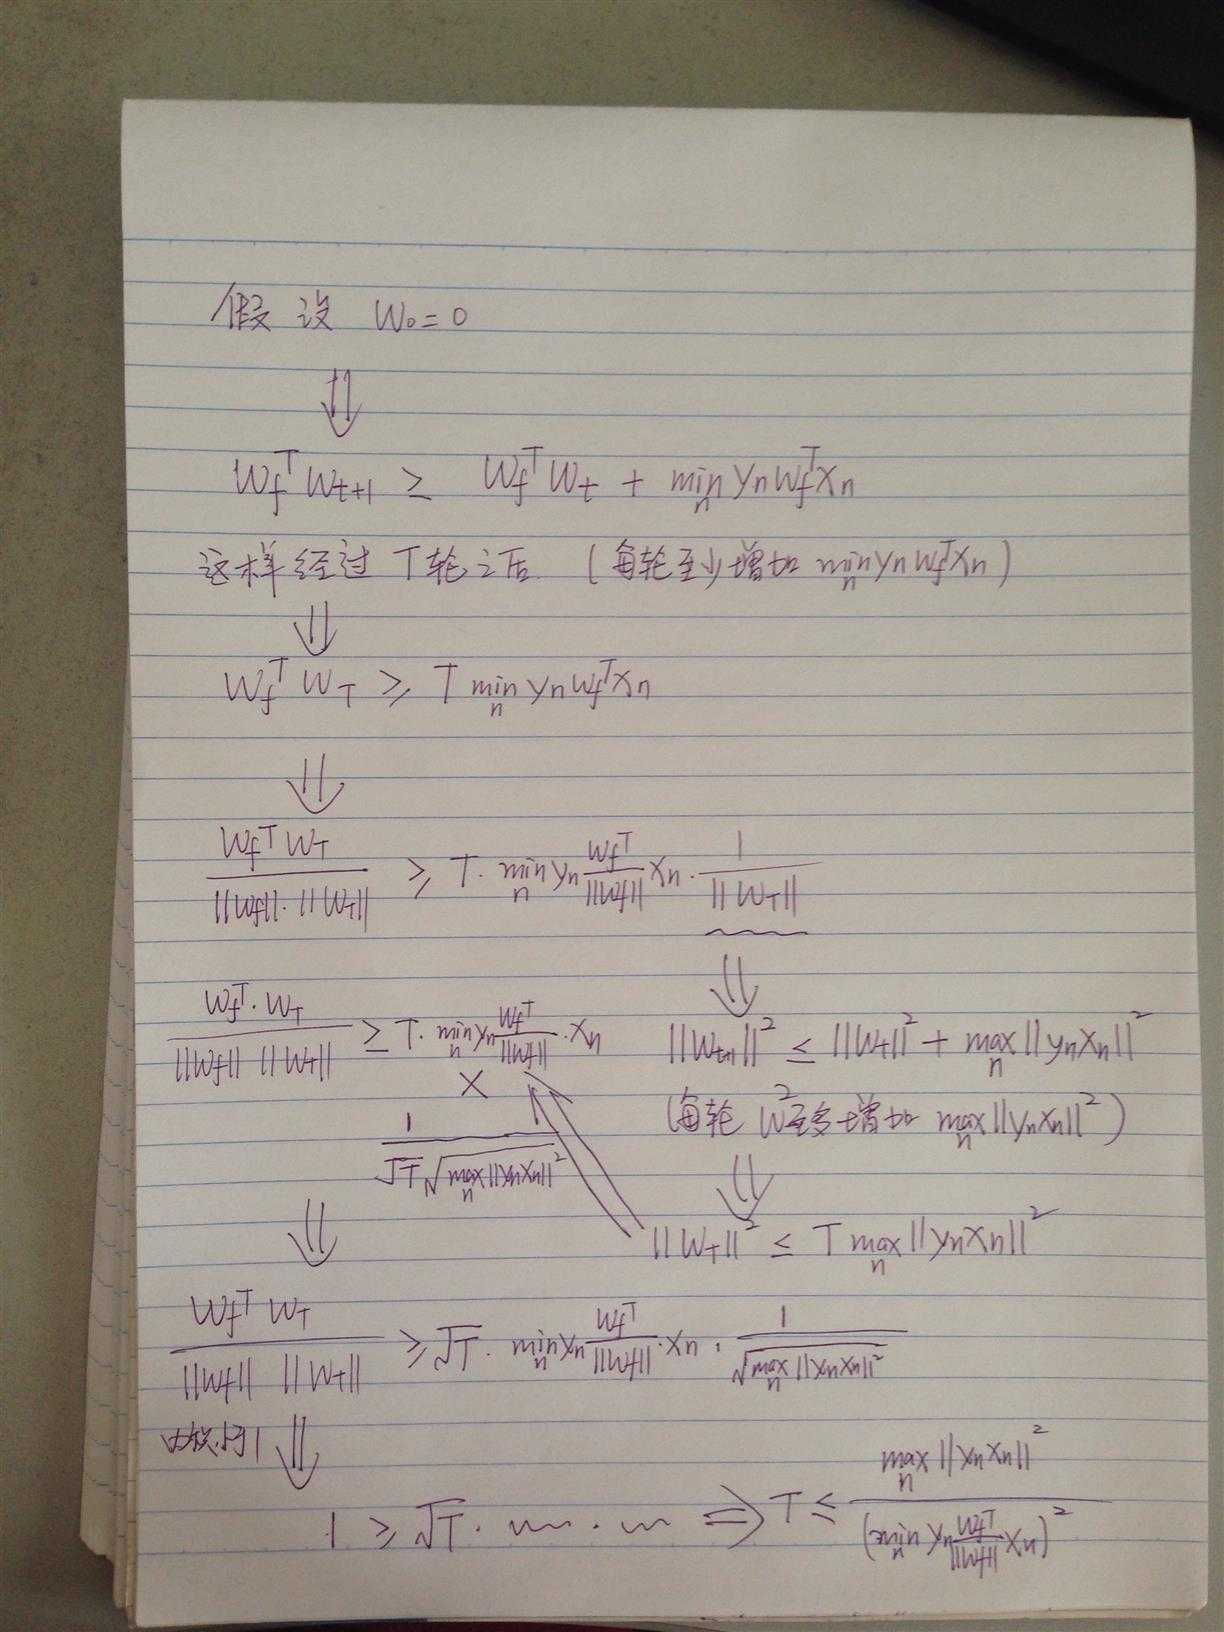 假设 W₀=0
⇓
W_f^T W_{t+1} ≥ W_f^T W_t + min_n y_n W_f^T x_n
这样经过T轮之后 (每轮至少增加 min_n y_n W_f^T x_n)
⇓
W_f^T W_T ≥ T min_n y_n W_f^T x_n
⇓
W_f^T W_T / (||W_f||·||W_T||) ≥ T· min_n y_n (W_f^T / ||W_f||) x_n · 1 / ||W_T||
⇓
W_f^T·W_T / (||W_f|| ||W_T||) ≥ T· min_n y_n (W_f^T / ||W_f||)·x_n
× 1 / (√T √(max_n ||y_n x_n||²))
||W_{t+1}||² ≤ ||W_t||² + max_n ||y_n x_n||²
(每轮 W²至多增加 max_n ||y_n x_n||²)
⇓
||W_T||² ≤ T max_n ||y_n x_n||²
⇓
W_f^T W_T / (||W_f|| ||W_T||) ≥ √T· min_n y_n (W_f^T / ||W_f||)·x_n · 1 / √(max_n ||y_n x_n||²)
⇓
1 ≥ √T· ~~ · ~~ ⇒ T ≤ max_n ||y_n x_n||² / (min_n y_n (W_f^T / ||W_f||) x_n)²